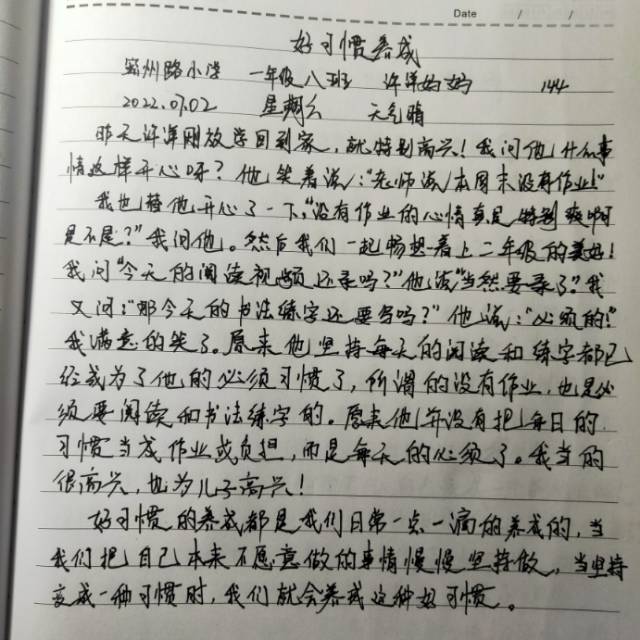 Date / /
好习惯养成
州路小学 一年级八班 许洋妈妈 144
2022.07.02 星期六 天气晴
昨天许洋刚放学回到家，就特别高兴！我问他什么事
情这样开心呀？他笑着说：“老师说本周末没有作业！”
我也替他开心了一下，“没有作业的心情真是特别爽啊
是不是？”我问他。然后我们一起畅想着上二年级的美好！
我问“今天的阅读视频还录吗？”他说“当然要录了”我
又问：“那今天的书法练字还要写吗？”他说：“必须的！”
我满意的笑了。原来他坚持每天的阅读和练字都已
经成为了他的必须习惯了，所谓的没有作业，也是必
须要阅读和书法练字的。原来他并没有把每日的
习惯当成作业或负担，而是每天的必须了。我当的
很高兴，也为儿子高兴！
好习惯的养成都是我们日常一点一滴的养成的，当
我们把自己本来不愿意做的事情慢慢坚持做，当坚持
变成一种习惯时，我们就会养成这种好习惯。